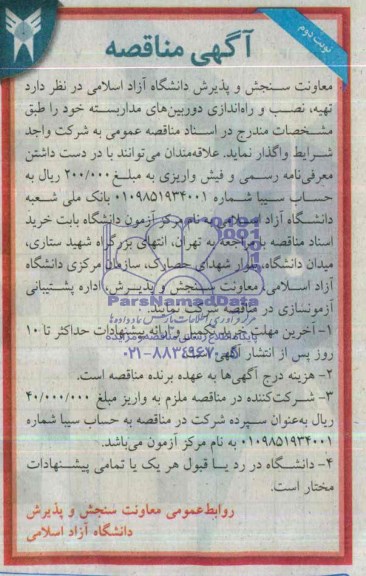 نوبت دوم
آگهی مناقصه
معاونت سنجش و پذیرش دانشگاه آزاد اسلامی در نظر دارد
تهیه، نصب و راه‌اندازی دوربین‌های مداربسته خود را طبق
مشخصات مندرج در اسناد مناقصه عمومی به شرکت واجد
شرایط واگذار نماید. علاقه‌مندان می‌توانند با در دست داشتن
معرفی‌نامه رسمی و فیش واریزی به مبلغ ۲۰۰/۰۰۰ ریال به
حساب سیبا شماره ۰۱۰۹۸۵۱۹۳۴۰۰۱ بانک ملی شعبه
دانشگاه آزاد اسلامی به نام مرکز آزمون دانشگاه بابت خرید
اسناد مناقصه با مراجعه به تهران، انتهای بزرگراه شهید ستاری،
میدان دانشگاه، بلوار شهدای حصارک، سازمان مرکزی دانشگاه
آزاد اسلامی، معاونت سنجش و پذیرش، اداره پشتیبانی
آزمونسازی در مناقصه شرکت نمایند.
ParsNamadData
۱- آخرین مهلت خرید، تکمیل و ارائه پیشنهادات حداکثر تا ۱۰
روز پس از انتشار آگهی است.
۰۲۱-۸۸۳۴۹۶۷۰
۲- هزینه درج آگهی‌ها به عهده برنده مناقصه است.
۳- شرکت‌کننده در مناقصه ملزم به واریز مبلغ ۴۰/۰۰۰/۰۰۰
ریال به‌عنوان سپرده شرکت در مناقصه به حساب سیبا شماره
۰۱۰۹۸۵۱۹۳۴۰۰۱ به نام مرکز آزمون می‌باشد.
۴- دانشگاه در رد یا قبول هر یک یا تمامی پیشنهادات
مختار است.
روابط‌عمومی معاونت سنجش و پذیرش
دانشگاه آزاد اسلامی